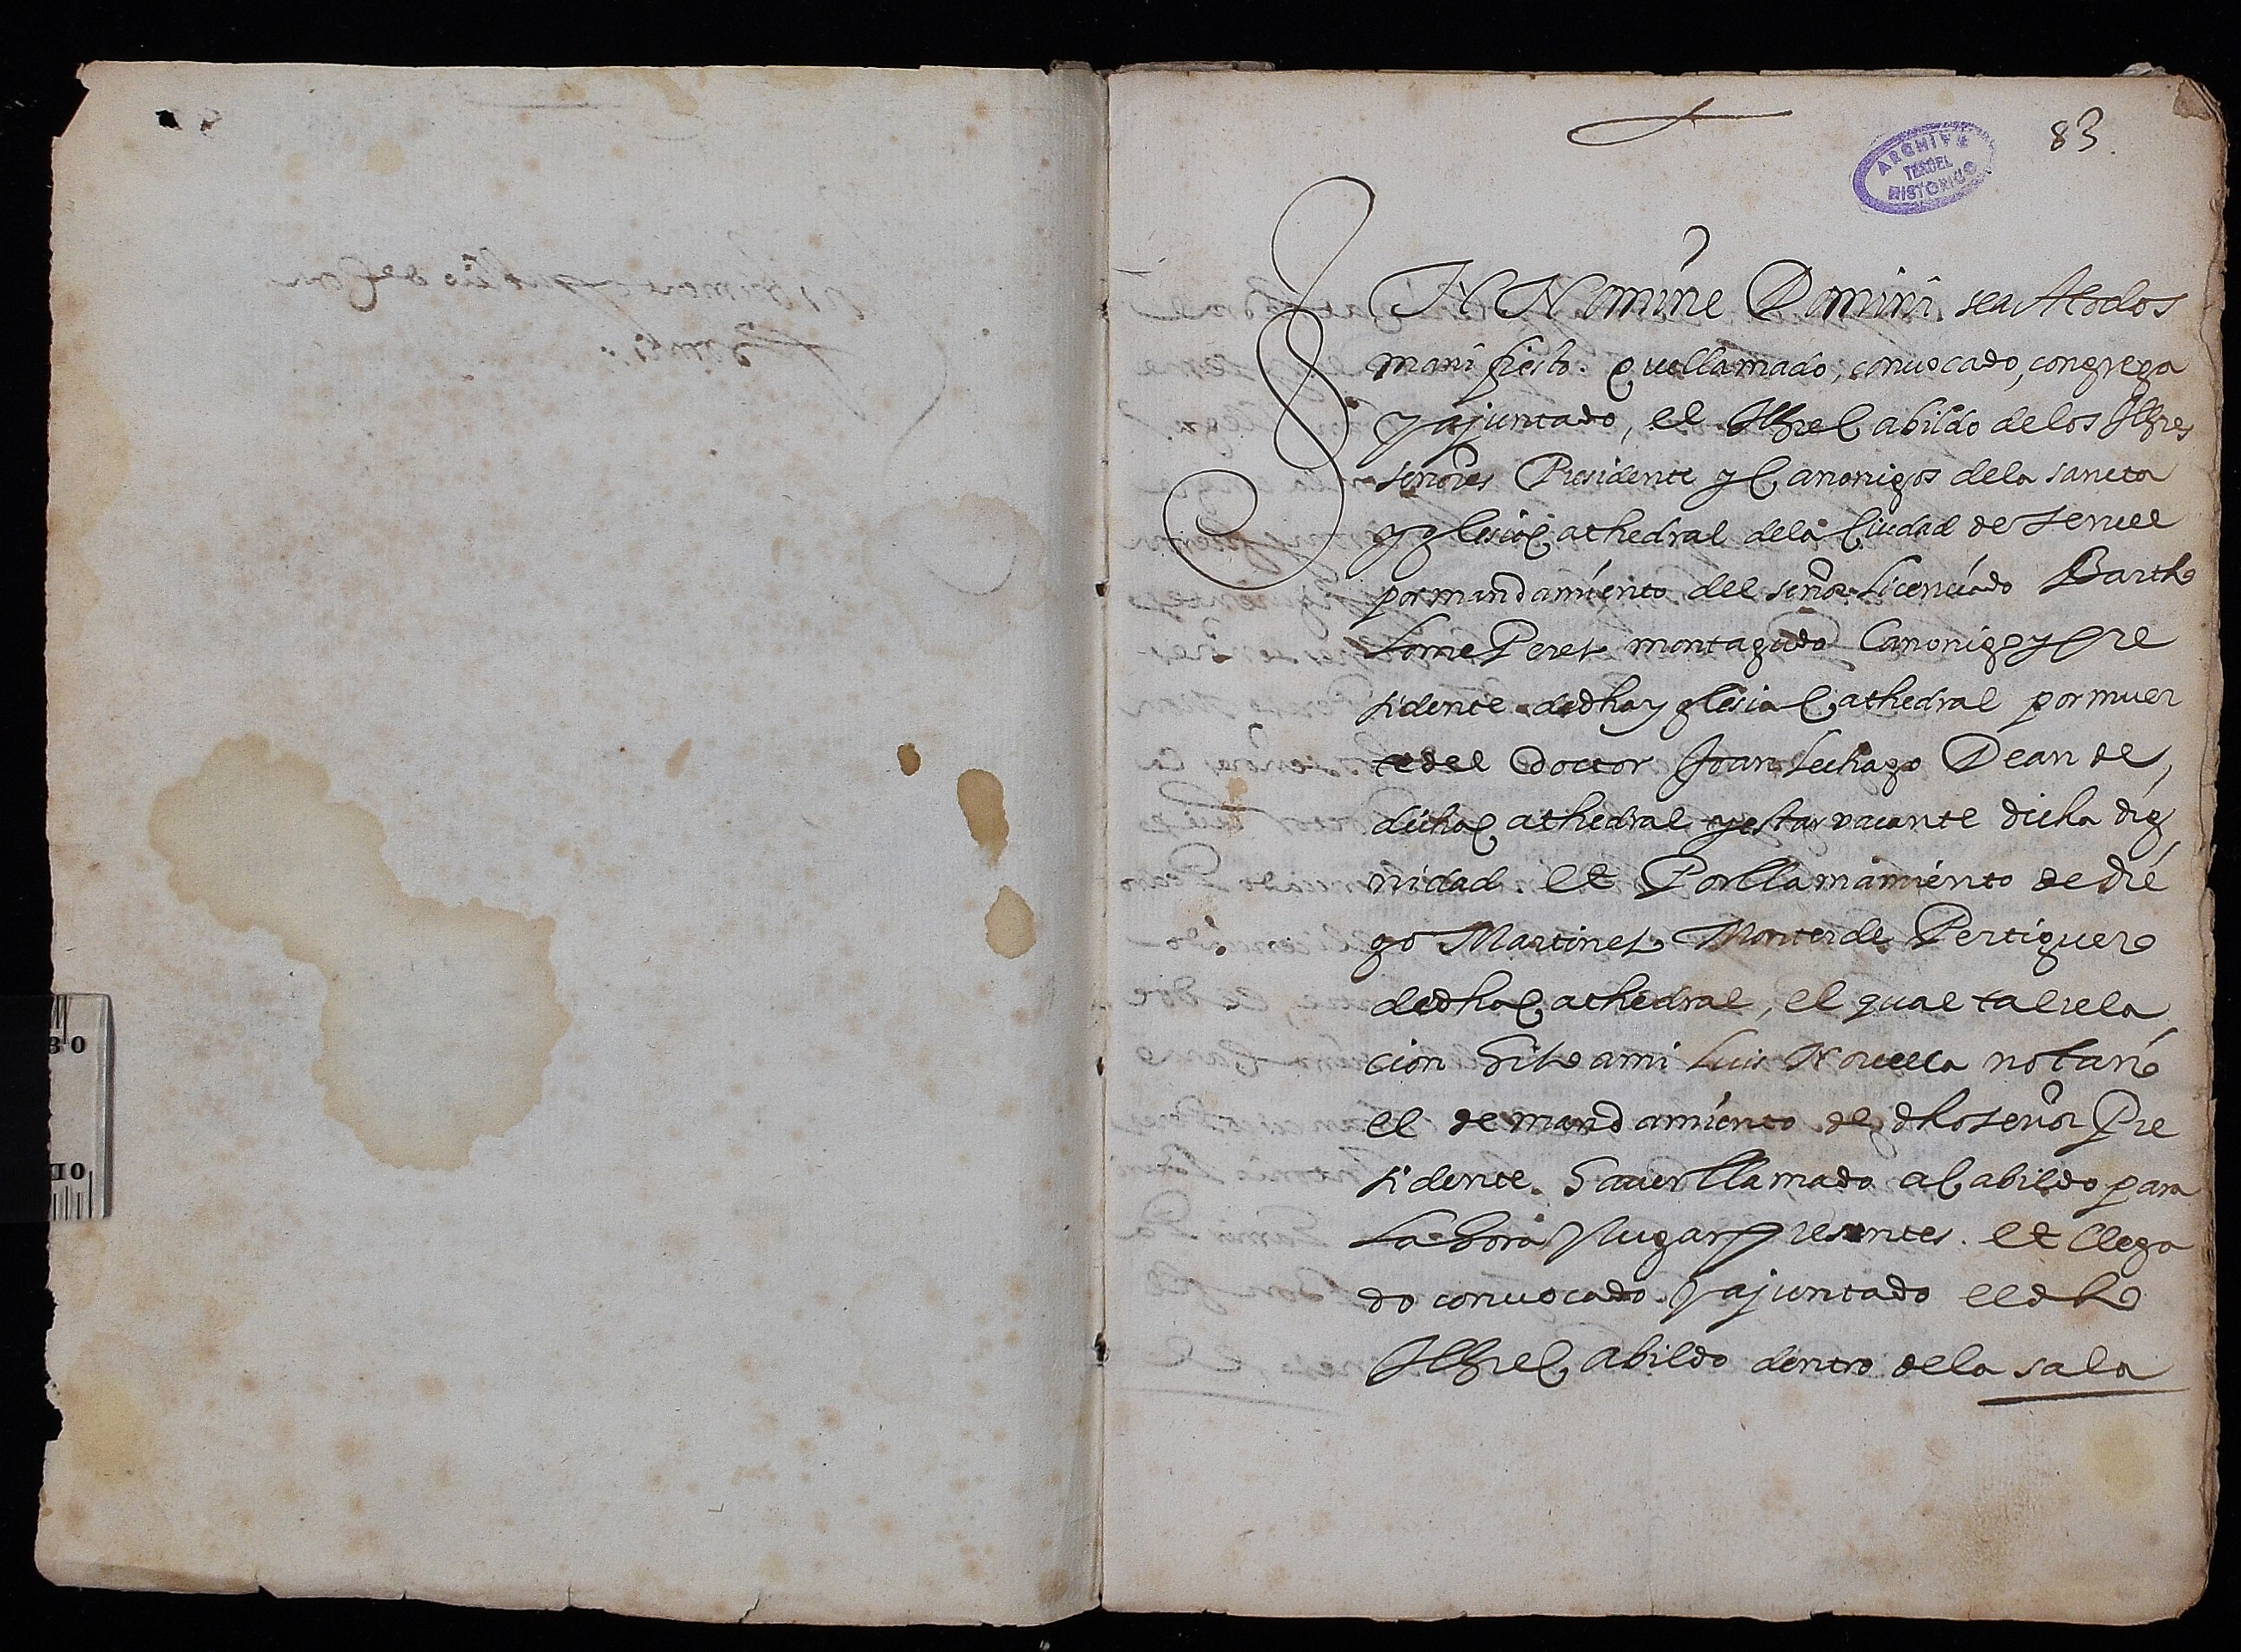 83.
ARCHIVO
TERUEL
HISTORICO
IN Nomine Domini sea Atodos
manifiesto. Que llamado, convocado, congrega
y ajuntado, el Illre Cabildo delos Illres
señores Presidente y Canonigos dela sancta
yglesia Cathedral dela Ciudad de Teruel
por mandamiento del señor Licenciado Bartho
lome Perez montagudo Canonigo y Pre
sidente de dha yglesia Cathedral por muer
te del Doctor Joan Lechago Dean de,
dicha Cathedral y estar vacante dicha dig
nidad. Et Por llamamiento de die
go Martinez Monterde Pertiguero
de dha Cathedral, el qual tal rela
cion hizo a mi Luis Novella notario
el de mandamiento de dho señor Pre
sidente. haver llamado a Cabildo para
La hora y lugar presentes. et llega
do convocado y ajuntado el dho
Illre Cabildo dentro dela sala